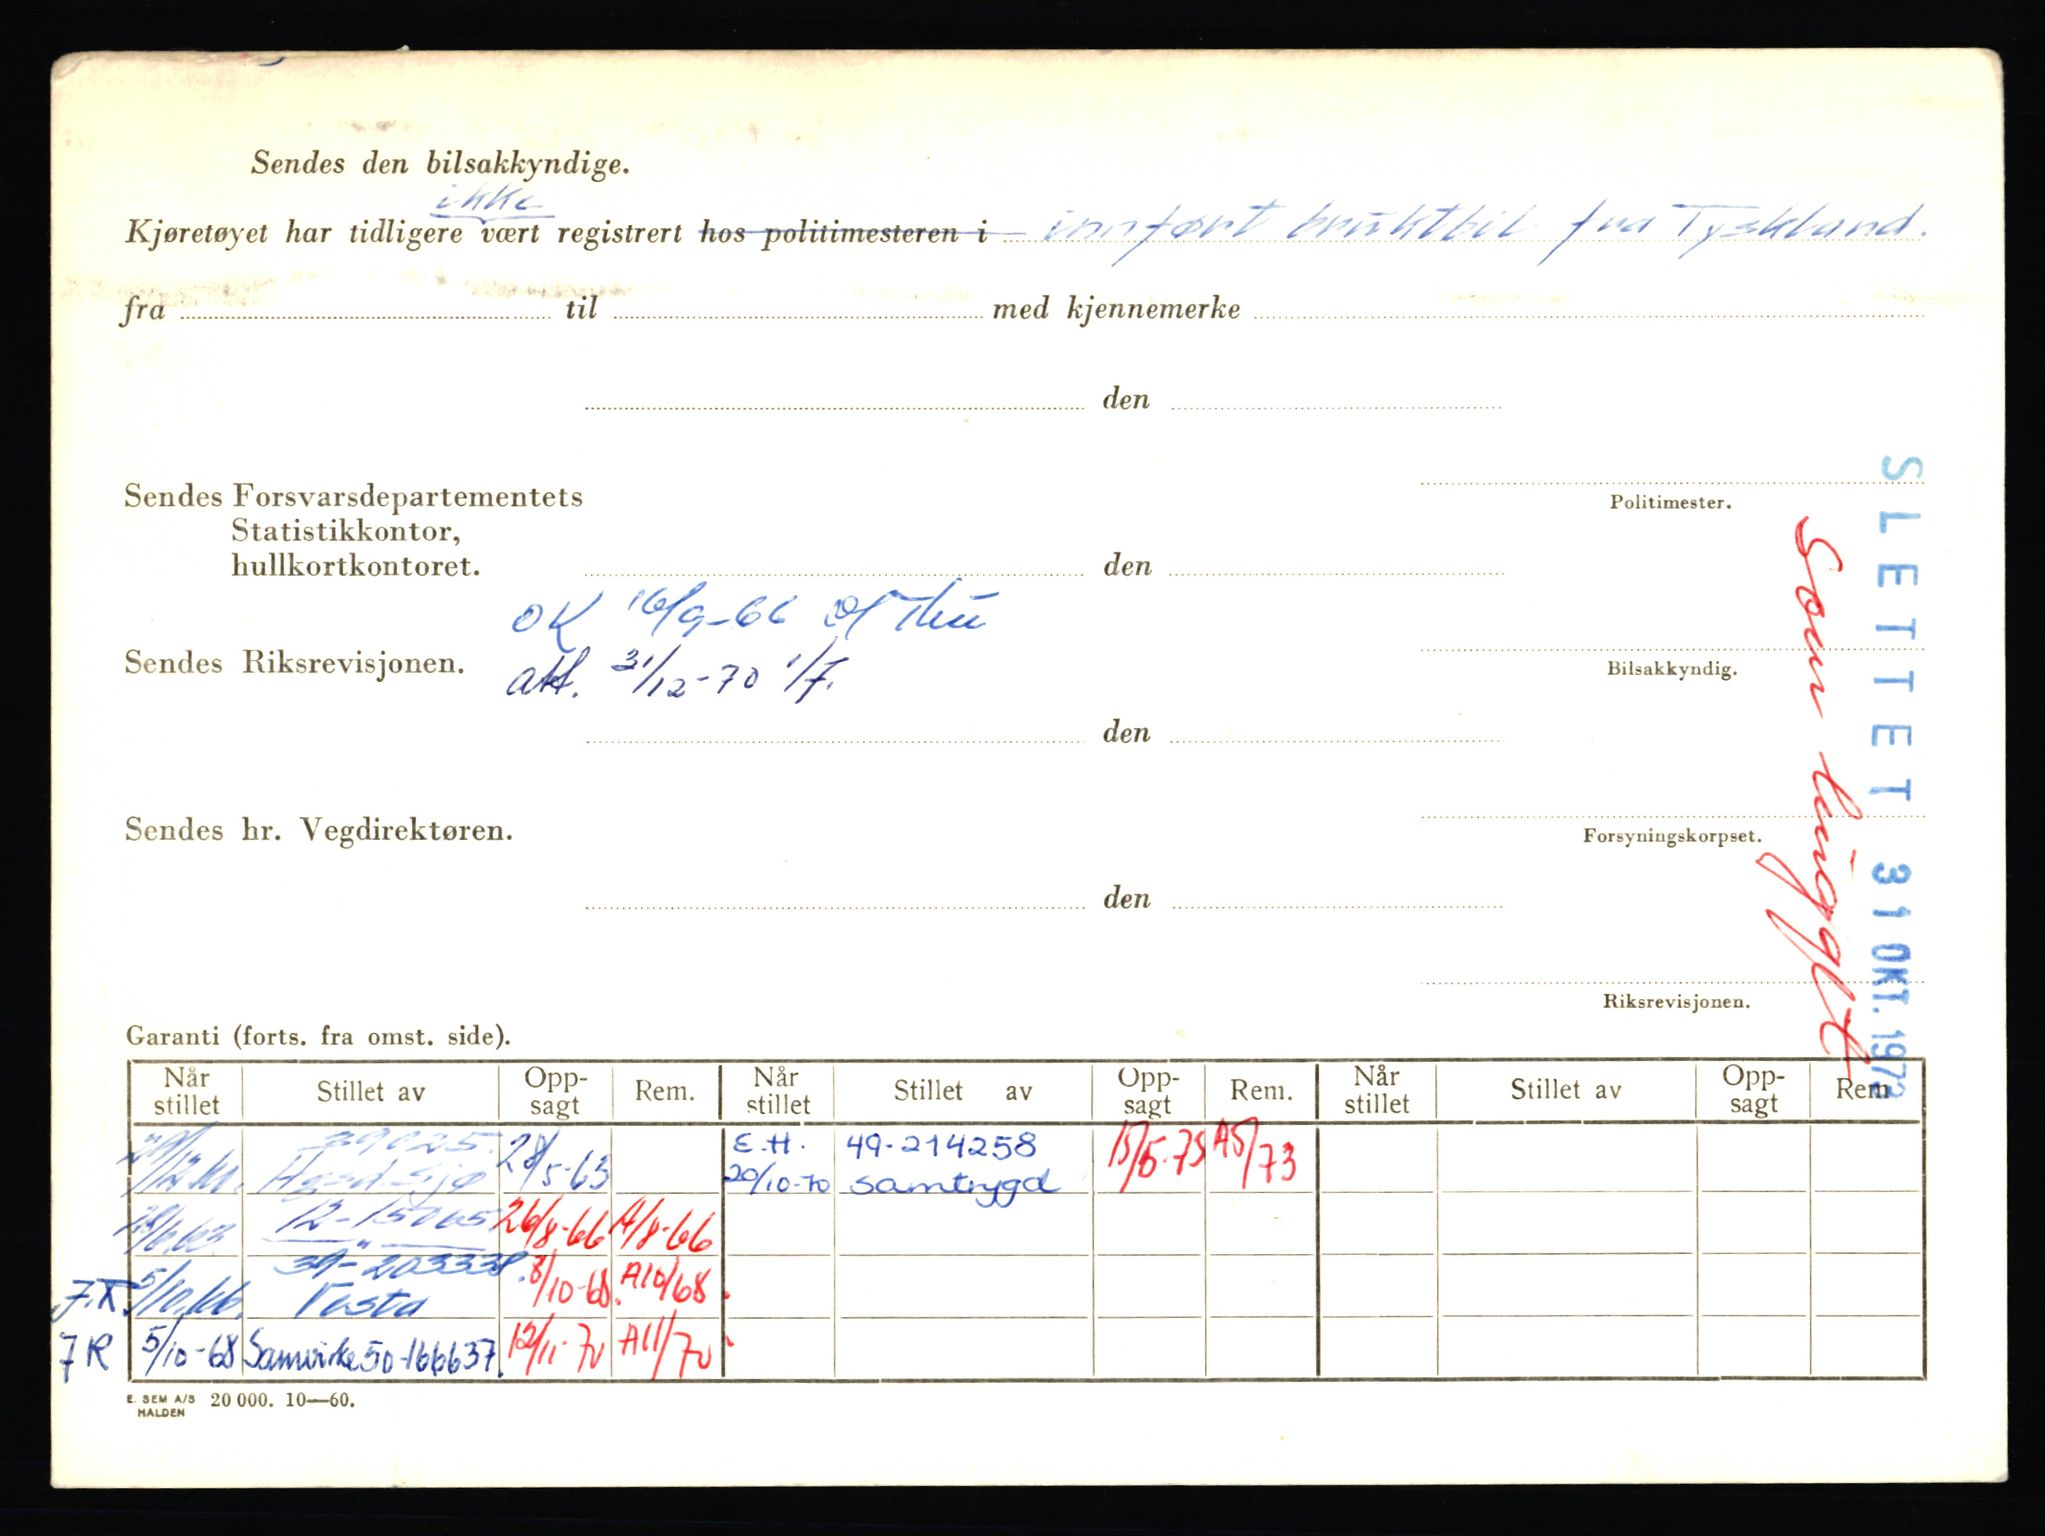 Sendes den bilsakkyndige.
ikke
Kjøretøyet har tidligere vært registrert hos politimesteren i innført bruktbil fra Tyskland.
fra til med kjennemerke
den
Sendes Forsvarsdepartementets
Statistikkontor,
hullkortkontoret.
Politimester.
den
OK 16/9-66
Sendes Riksrevisjonen.
att. 31/12-70
Bilsakkyndig.
den
Sendes hr. Vegdirektøren.
Forsyningskorpset.
den
Riksrevisjonen.
SLETTET 31 OKT. 1973
Som
Garanti (forts. fra omst. side).
Når stillet Stillet av Opp-sagt Rem. Når stillet Stillet av Opp-sagt Rem. Når stillet Stillet av Opp-sagt Rem
39025. 28/5-63 E.H. 49-214258 15/5-73 A5/73
20/10-70 Samtrygd
26/8-66 A/8-66
39-203338.
5/10.66 Vesta 8/10-68. A10/68.
7R 5/10-68 Samvirke 50-166637. 12/11-70 A11/70
E. SEM A/S
HALDEN
20 000. 10—60.